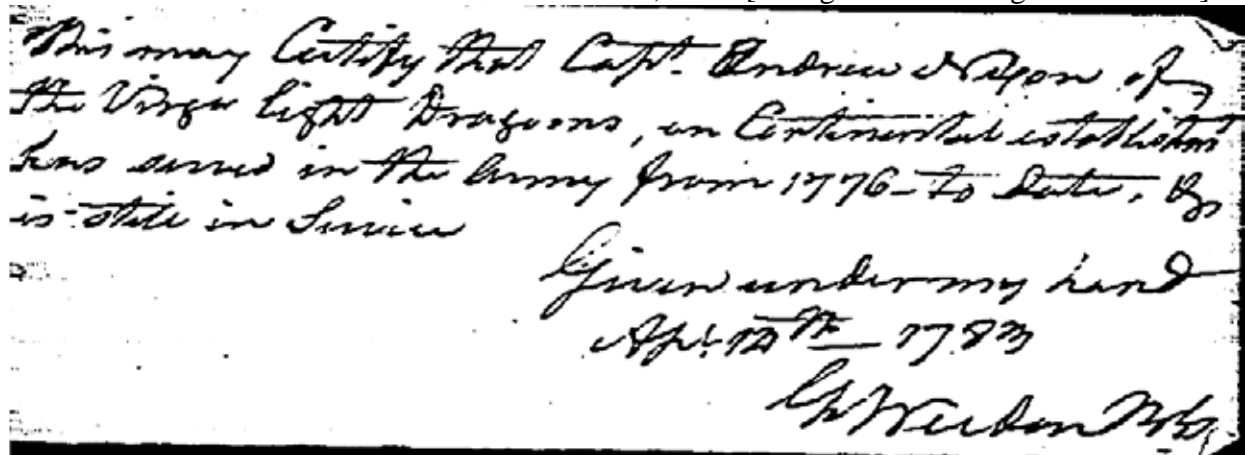 This may Certify that Capt. Andrew Nixon of
the Virga light Dragoons, on Continental establishmt
has served in the Army from 1776 – to date, &
is still in Service
Given under my hand
Apl. 12th – 1783
G Weedon B G